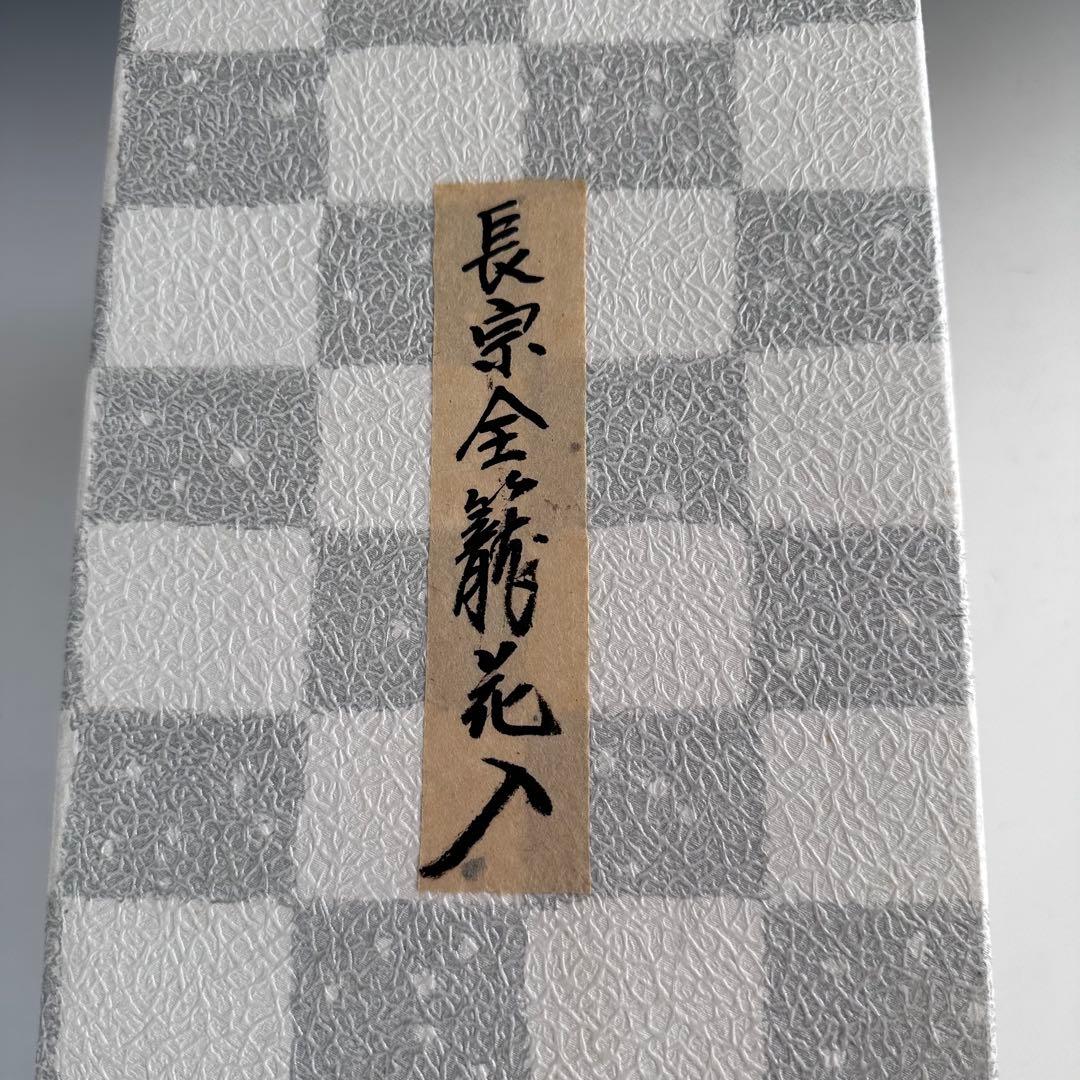 長宗全籠花入